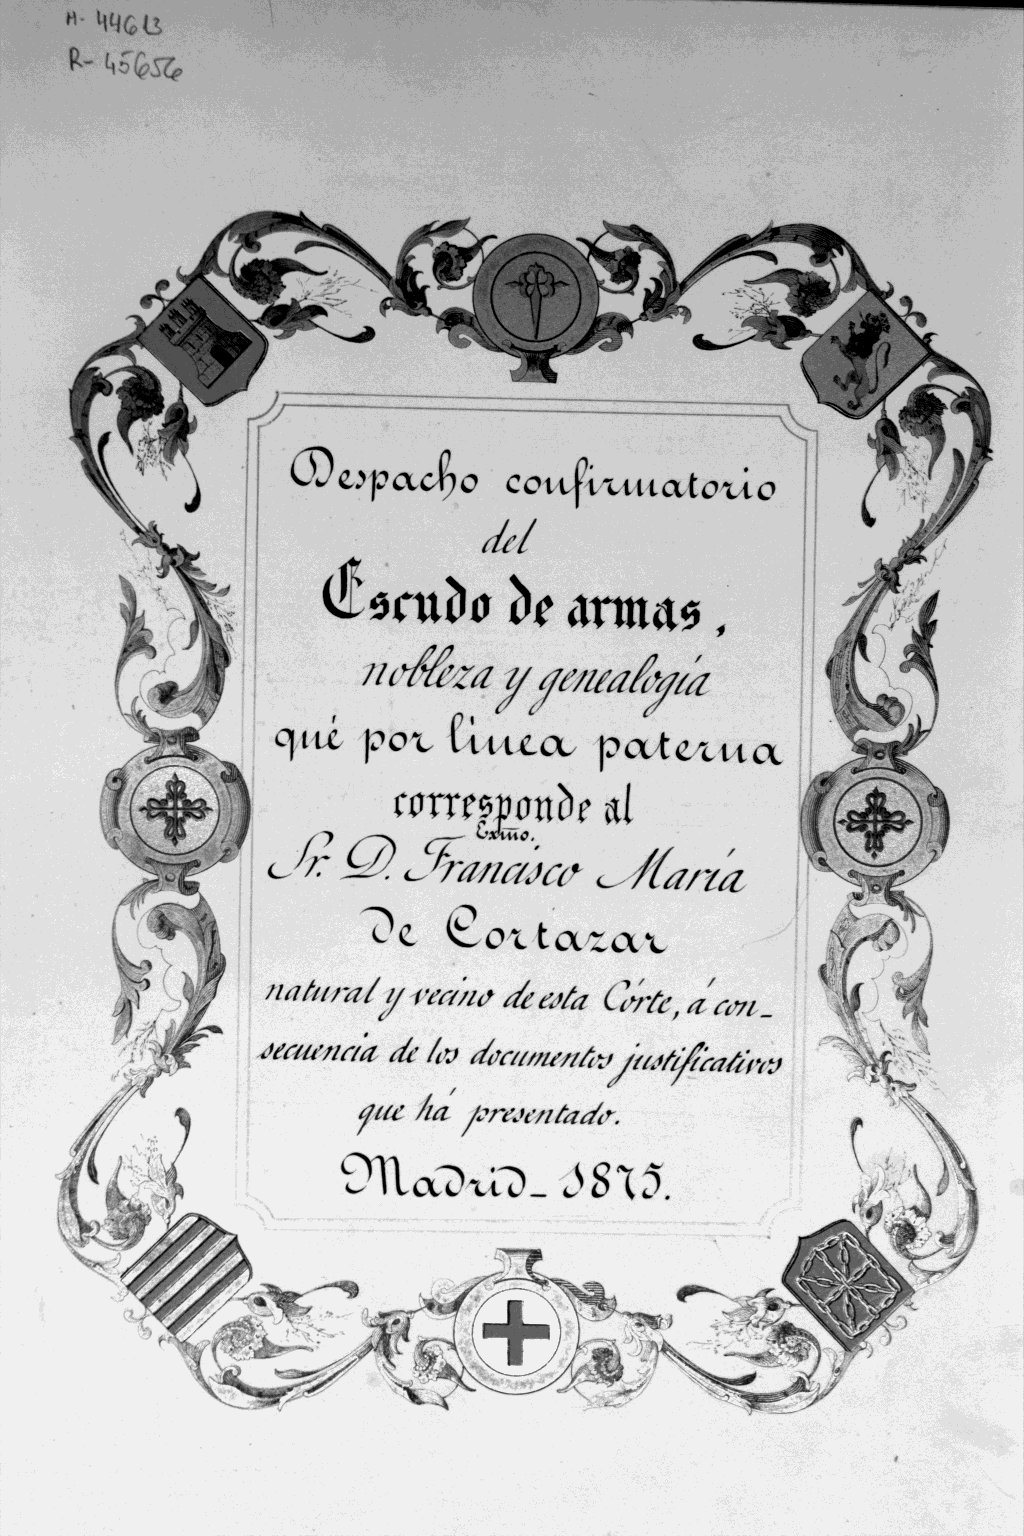 A- 44613
R- 45656
Despacho confirmatorio
del
Escudo de armas,
nobleza y genealogía
qué por linea paterna
corresponde al
Exmo.
Sr. D. Francisco María
de Cortazar
natural y vecino de esta Córte, á con_
secuencia de los documentos justificativos
que há presentado.
Madrid_ 1875.